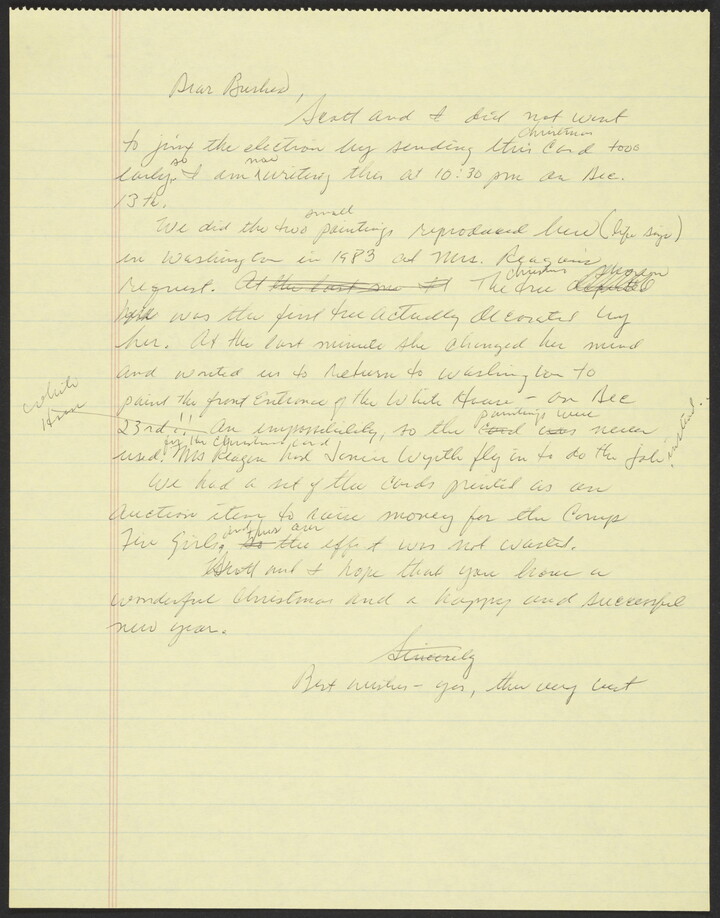 Dear Bushes,
Scott and I did not want
to jinx the election by sending this Christmas card tooo
early. so I am now writing this at 10:30 pm on Dec.
13th.
We did the two small paintings reproduced here (life size)
in Washington in 1983 at Mrs. Reagan's
request. At the last The Christmas tree shown
here was the first tree actually decorated by
her. At the last minute she changed her mind
and wanted us to return to Washington to
paint the front Entrance of the White House – on Dec
White House
23rd!! An impossibility, so the card was paintings were never
used for the Christmas card. Mrs Reagan had Jamie Wyeth fly in to do the job instead.
We had a set of the cards printed as an
auction item to raise money for the Camp
Fire Girls, and thus our the effort was not wasted.
Scott and I hope that you have a
wonderful Christmas and a happy and successful
new year.
Sincerely
Best wishes – yes, the very best